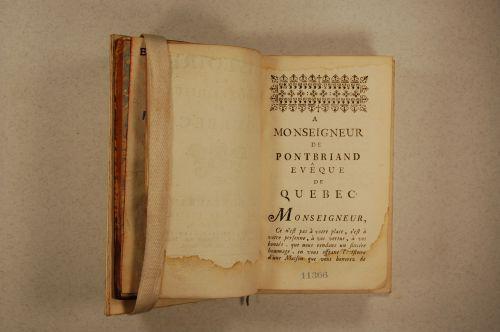 A
MONSEIGNEUR
DE
PONTBRIAND
EVÊQUE
DE
QUEBEC.
MONSEIGNEUR,
Ce n'est pas à votre place, c'est à
votre personne, à vos vertus, à vos
bontés, que nous rendons un sincère
hommage, en vous offrant l'Histoire
d'une Maison que vous honorez de
11366